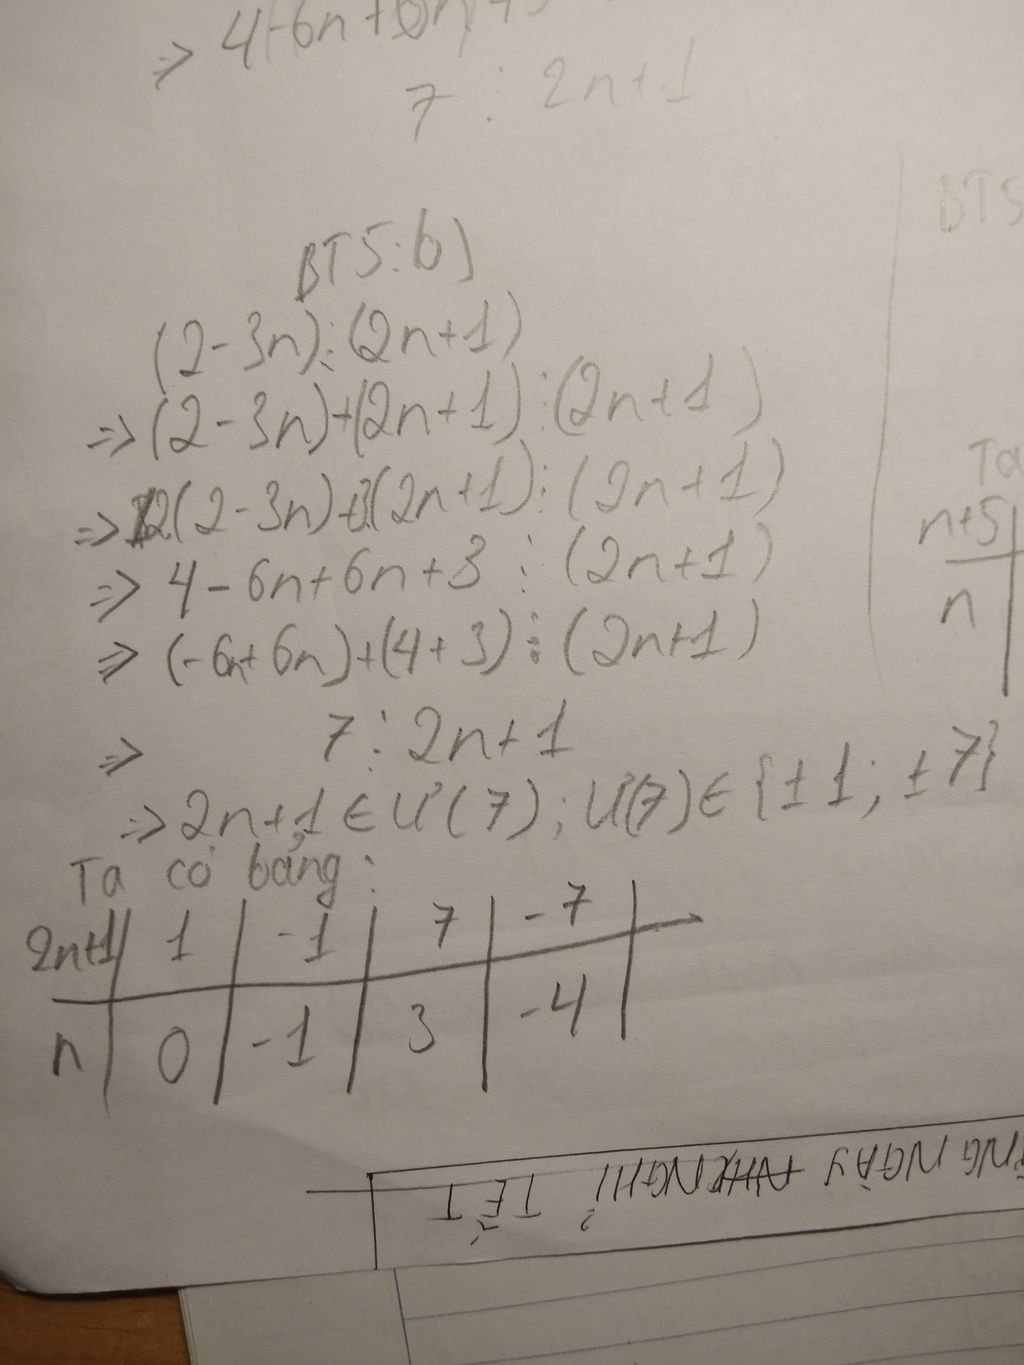 => 4-6n+6n+3
7 ⋮ 2n+1
BT5
BT5:b)
(2-3n)⋮(2n+1)
=> (2-3n)+(2n+1)⋮(2n+1)
=> 2(2-3n)+3(2n+1)⋮(2n+1)
=> 4-6n+6n+3 ⋮ (2n+1)
=> (-6n+6n)+(4+3)⋮(2n+1)
=> 7⋮2n+1
=> 2n+1 ∈ Ư(7); Ư(7) ∈ {±1; ±7}
Ta có bảng:
2n+1 | 1 | -1 | 7 | -7
n | 0 | -1 | 3 | -4
Ta
n+5
n
NGÀY NGHỈ TẾT